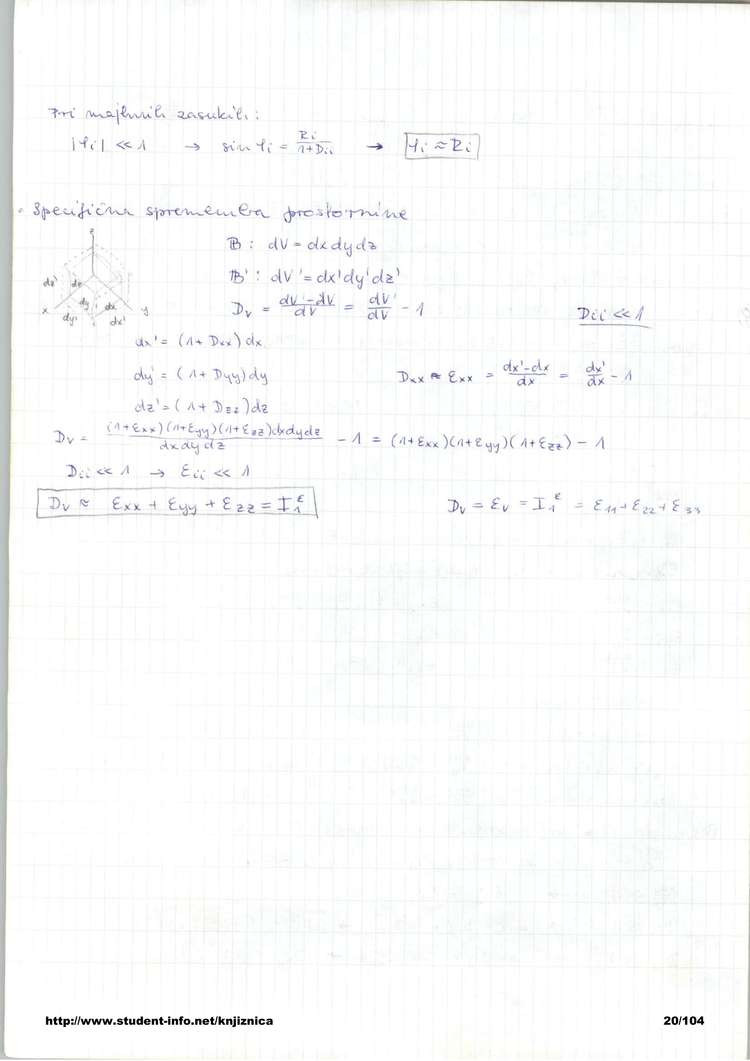 Pri majhnih zasukih:
|φi| << 1 → sin φi = Ri/(1+Dii) → φi ≈ Ri
• Specifična sprememba prostornine
z
B: dV = dx dy dz
B': dV' = dx'dy'dz'
dz' dz
dy dx
x y
dy' dx'
Dv = (dV'-dV)/dV = dV'/dV - 1
Dii << 1
dx' = (1 + Dxx) dx
dy' = (1 + Dyy) dy
Dxx ≈ εxx = (dx'-dx)/dx = dx'/dx - 1
dz' = (1 + Dzz) dz
Dv = (1+εxx)(1+εyy)(1+εzz)dxdydz/dxdydz - 1 = (1+εxx)(1+εyy)(1+εzz) - 1
Dii << 1 → εii << 1
Dv ≈ εxx + εyy + εzz = I₁^ε
Dv = εv = I₁^ε = ε11 + ε22 + ε33
http://www.student-info.net/knjiznica 20/104